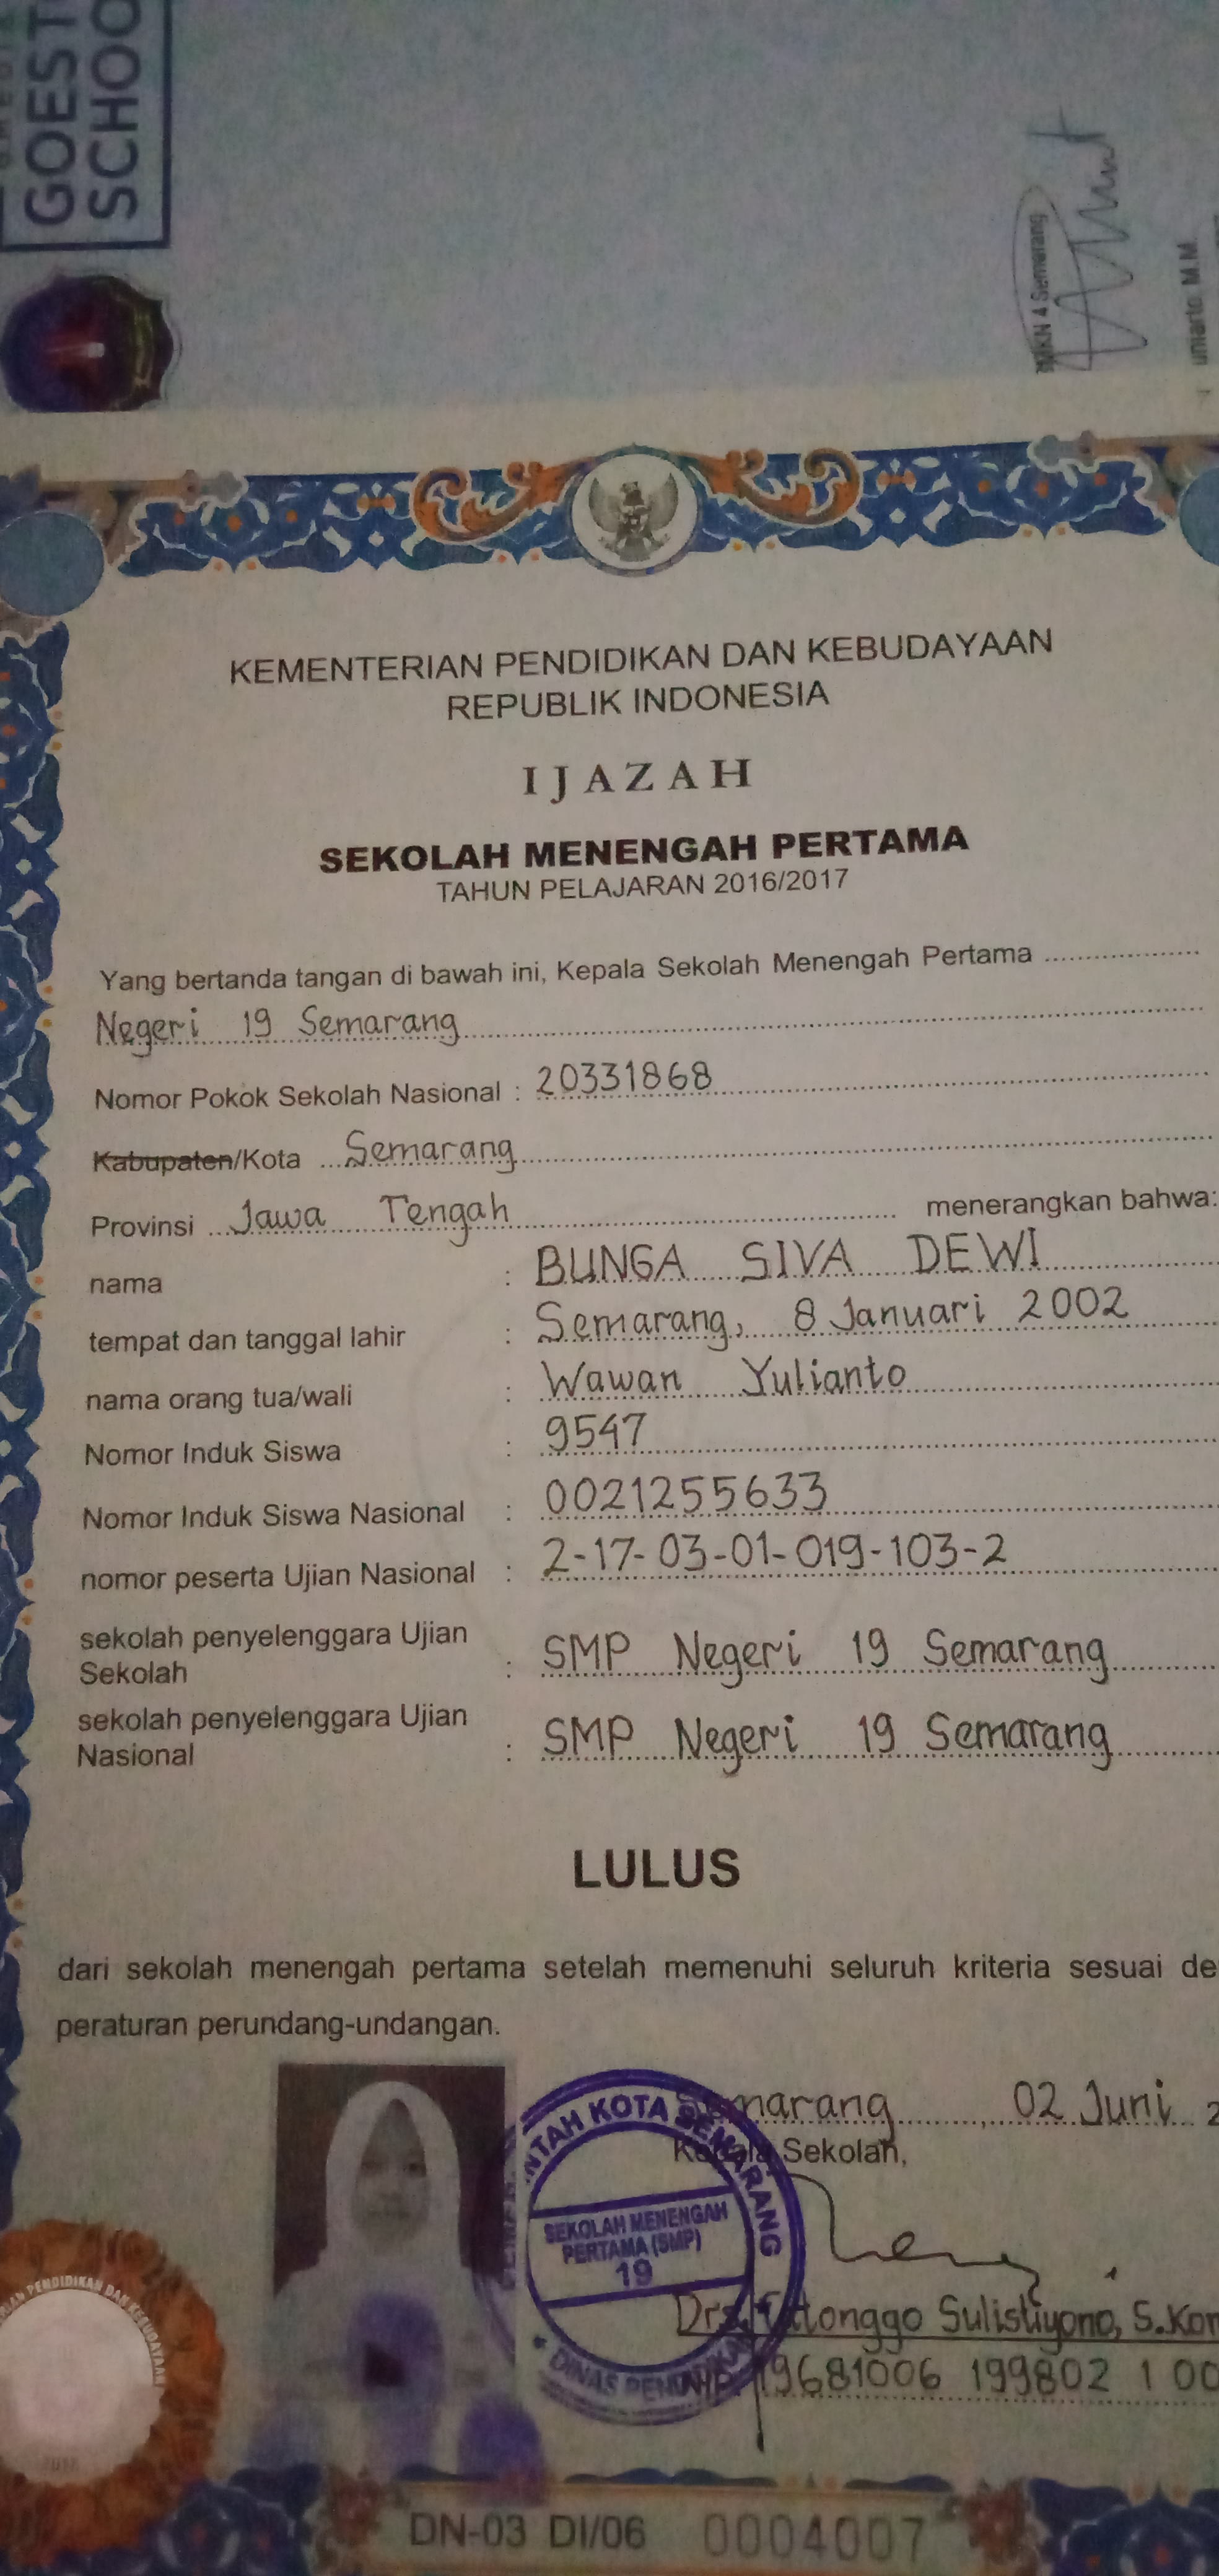 GOES T
SCHOO
SMKN 4 Semarang
M.M.
KEMENTERIAN PENDIDIKAN DAN KEBUDAYAAN
REPUBLIK INDONESIA
IJAZAH
SEKOLAH MENENGAH PERTAMA
TAHUN PELAJARAN 2016/2017
Yang bertanda tangan di bawah ini, Kepala Sekolah Menengah Pertama
Negeri 19 Semarang
Nomor Pokok Sekolah Nasional : 20331868
Kabupaten/Kota Semarang
Provinsi Jawa Tengah menerangkan bahwa:
nama : BUNGA SIVA DEWI
tempat dan tanggal lahir : Semarang, 8 Januari 2002
nama orang tua/wali : Wawan Yulianto
Nomor Induk Siswa : 9547
Nomor Induk Siswa Nasional : 0021255633
nomor peserta Ujian Nasional : 2-17-03-01-019-103-2
sekolah penyelenggara Ujian
Sekolah : SMP Negeri 19 Semarang
sekolah penyelenggara Ujian
Nasional : SMP Negeri 19 Semarang
LULUS
dari sekolah menengah pertama setelah memenuhi seluruh kriteria sesuai de
peraturan perundang-undangan.
Semarang, 02 Juni 2
Kepala Sekolah,
NTAH KOTA SEMARANG
SEKOLAH MENENGAH
PERTAMA (SMP)
19
DINAS PENDIDIKAN
Sulistiyono, S.Kom
NIP. 19681006 199802 1 00
PENDIDIKAN DAN KEBUDAYAAN
DN-03 DI/06 0004007